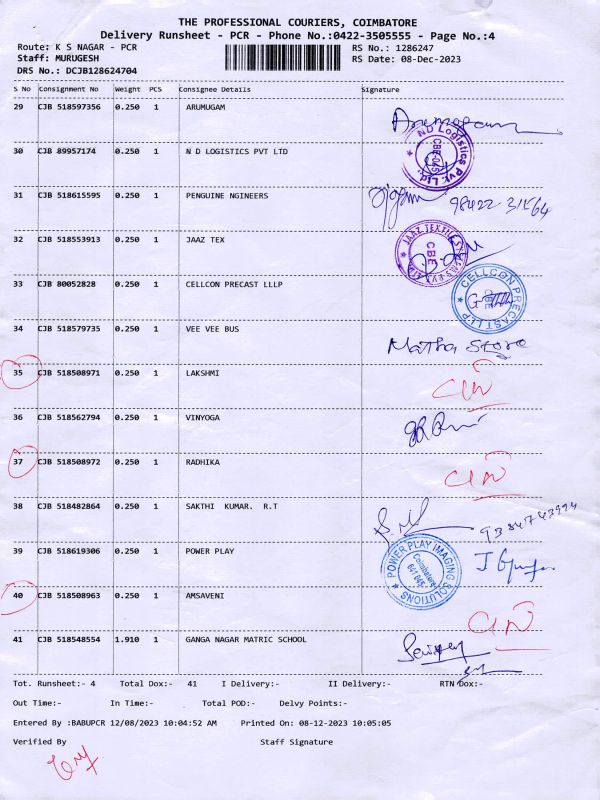 THE PROFESSIONAL COURIERS, COIMBATORE
Delivery Runsheet - PCR - Phone No.:0422-3505555 - Page No.:4
Route: K S NAGAR - PCR
RS No.: 1286247
Staff: MURUGESH
RS Date: 08-Dec-2023
DRS No.: DCJB128624704
S No Consignment No Weight PCS Consignee Details Signature
29 CJB 518597356 0.250 1 ARUMUGAM
30 CJB 89957174 0.250 1 N D LOGISTICS PVT LTD
ND Logistics Pvt. Ltd.
31 CJB 518615595 0.250 1 PENGUINE NGINEERS
32 CJB 518553913 0.250 1 JAAZ TEX
CBE
33 CJB 80052828 0.250 1 CELLCON PRECAST LLLP
CELLCON PRECAST LLP
34 CJB 518579735 0.250 1 VEE VEE BUS
Matha Store
35 CJB 518508971 0.250 1 LAKSHMI
36 CJB 518562794 0.250 1 VINYOGA
37 CJB 518508972 0.250 1 RADHIKA
38 CJB 518482864 0.250 1 SAKTHI KUMAR. R.T
39 CJB 518619306 0.250 1 POWER PLAY
POWER PLAY IMAGING SOLUTIONS
Coimbatore
641 045
40 CJB 518508963 0.250 1 AMSAVENI
41 CJB 518548554 1.910 1 GANGA NAGAR MATRIC SCHOOL
Tot. Runsheet:- 4 Total Dox:- 41 I Delivery:- II Delivery:- RTN Dox:-
Out Time:- In Time:- Total POD:- Delvy Points:-
Entered By :BABUPCR 12/08/2023 10:04:52 AM Printed On: 08-12-2023 10:05:05
Verified By Staff Signature